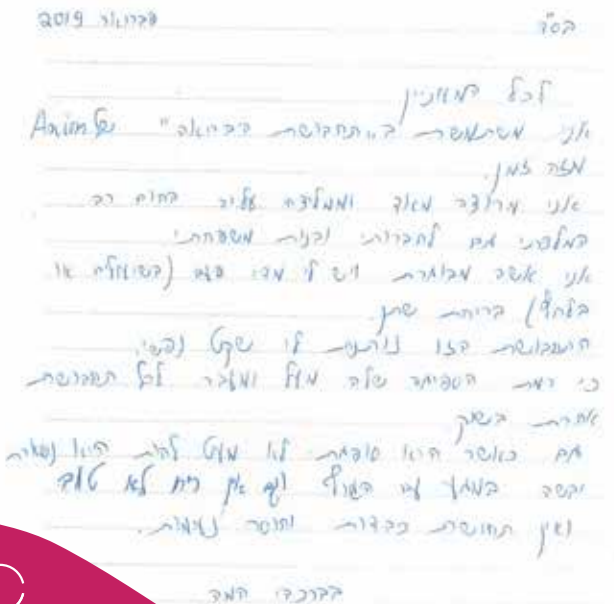 בס"ד פברואר 2019
לכל המעוניין
אני משתמשת ב"תחבושת הבריאה" של Anion
מזה זמן.
אני מרוצה מאוד וממליצה עליה בחום רב
המלצתי גם לחברותי ובנות משפחתי.
אני אשה מבוגרת ויש לי מדי פעם (בשיעולה או
בלחץ) בריחת שתן.
התחבושת הזו נותנת לי שקט נפשי.
כי רמת הספיחה שלה מעל ומעבר לכל תחבושת
אחרת בשוק
גם כאשר היא סופחת לא מעט להיות היא נשארת
יבשה במגע עם העור וגם אין ריח לא טוב
ואין תחושת כבדות וחוסר נעימות.
בברכה